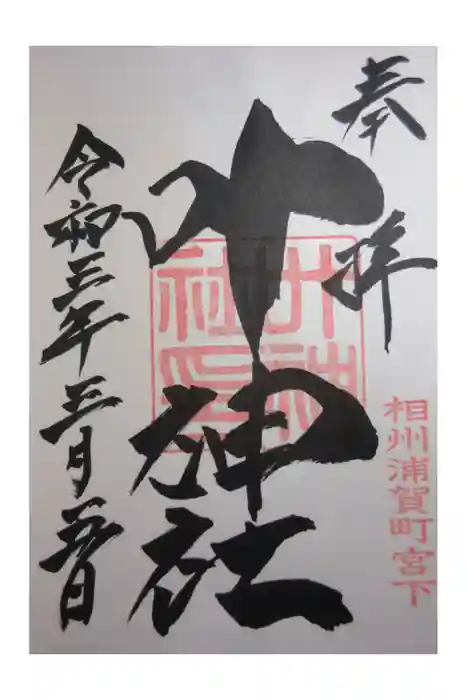 奉拝
相州浦賀町宮下
叶神社
叶神
社印
令和三年三月日